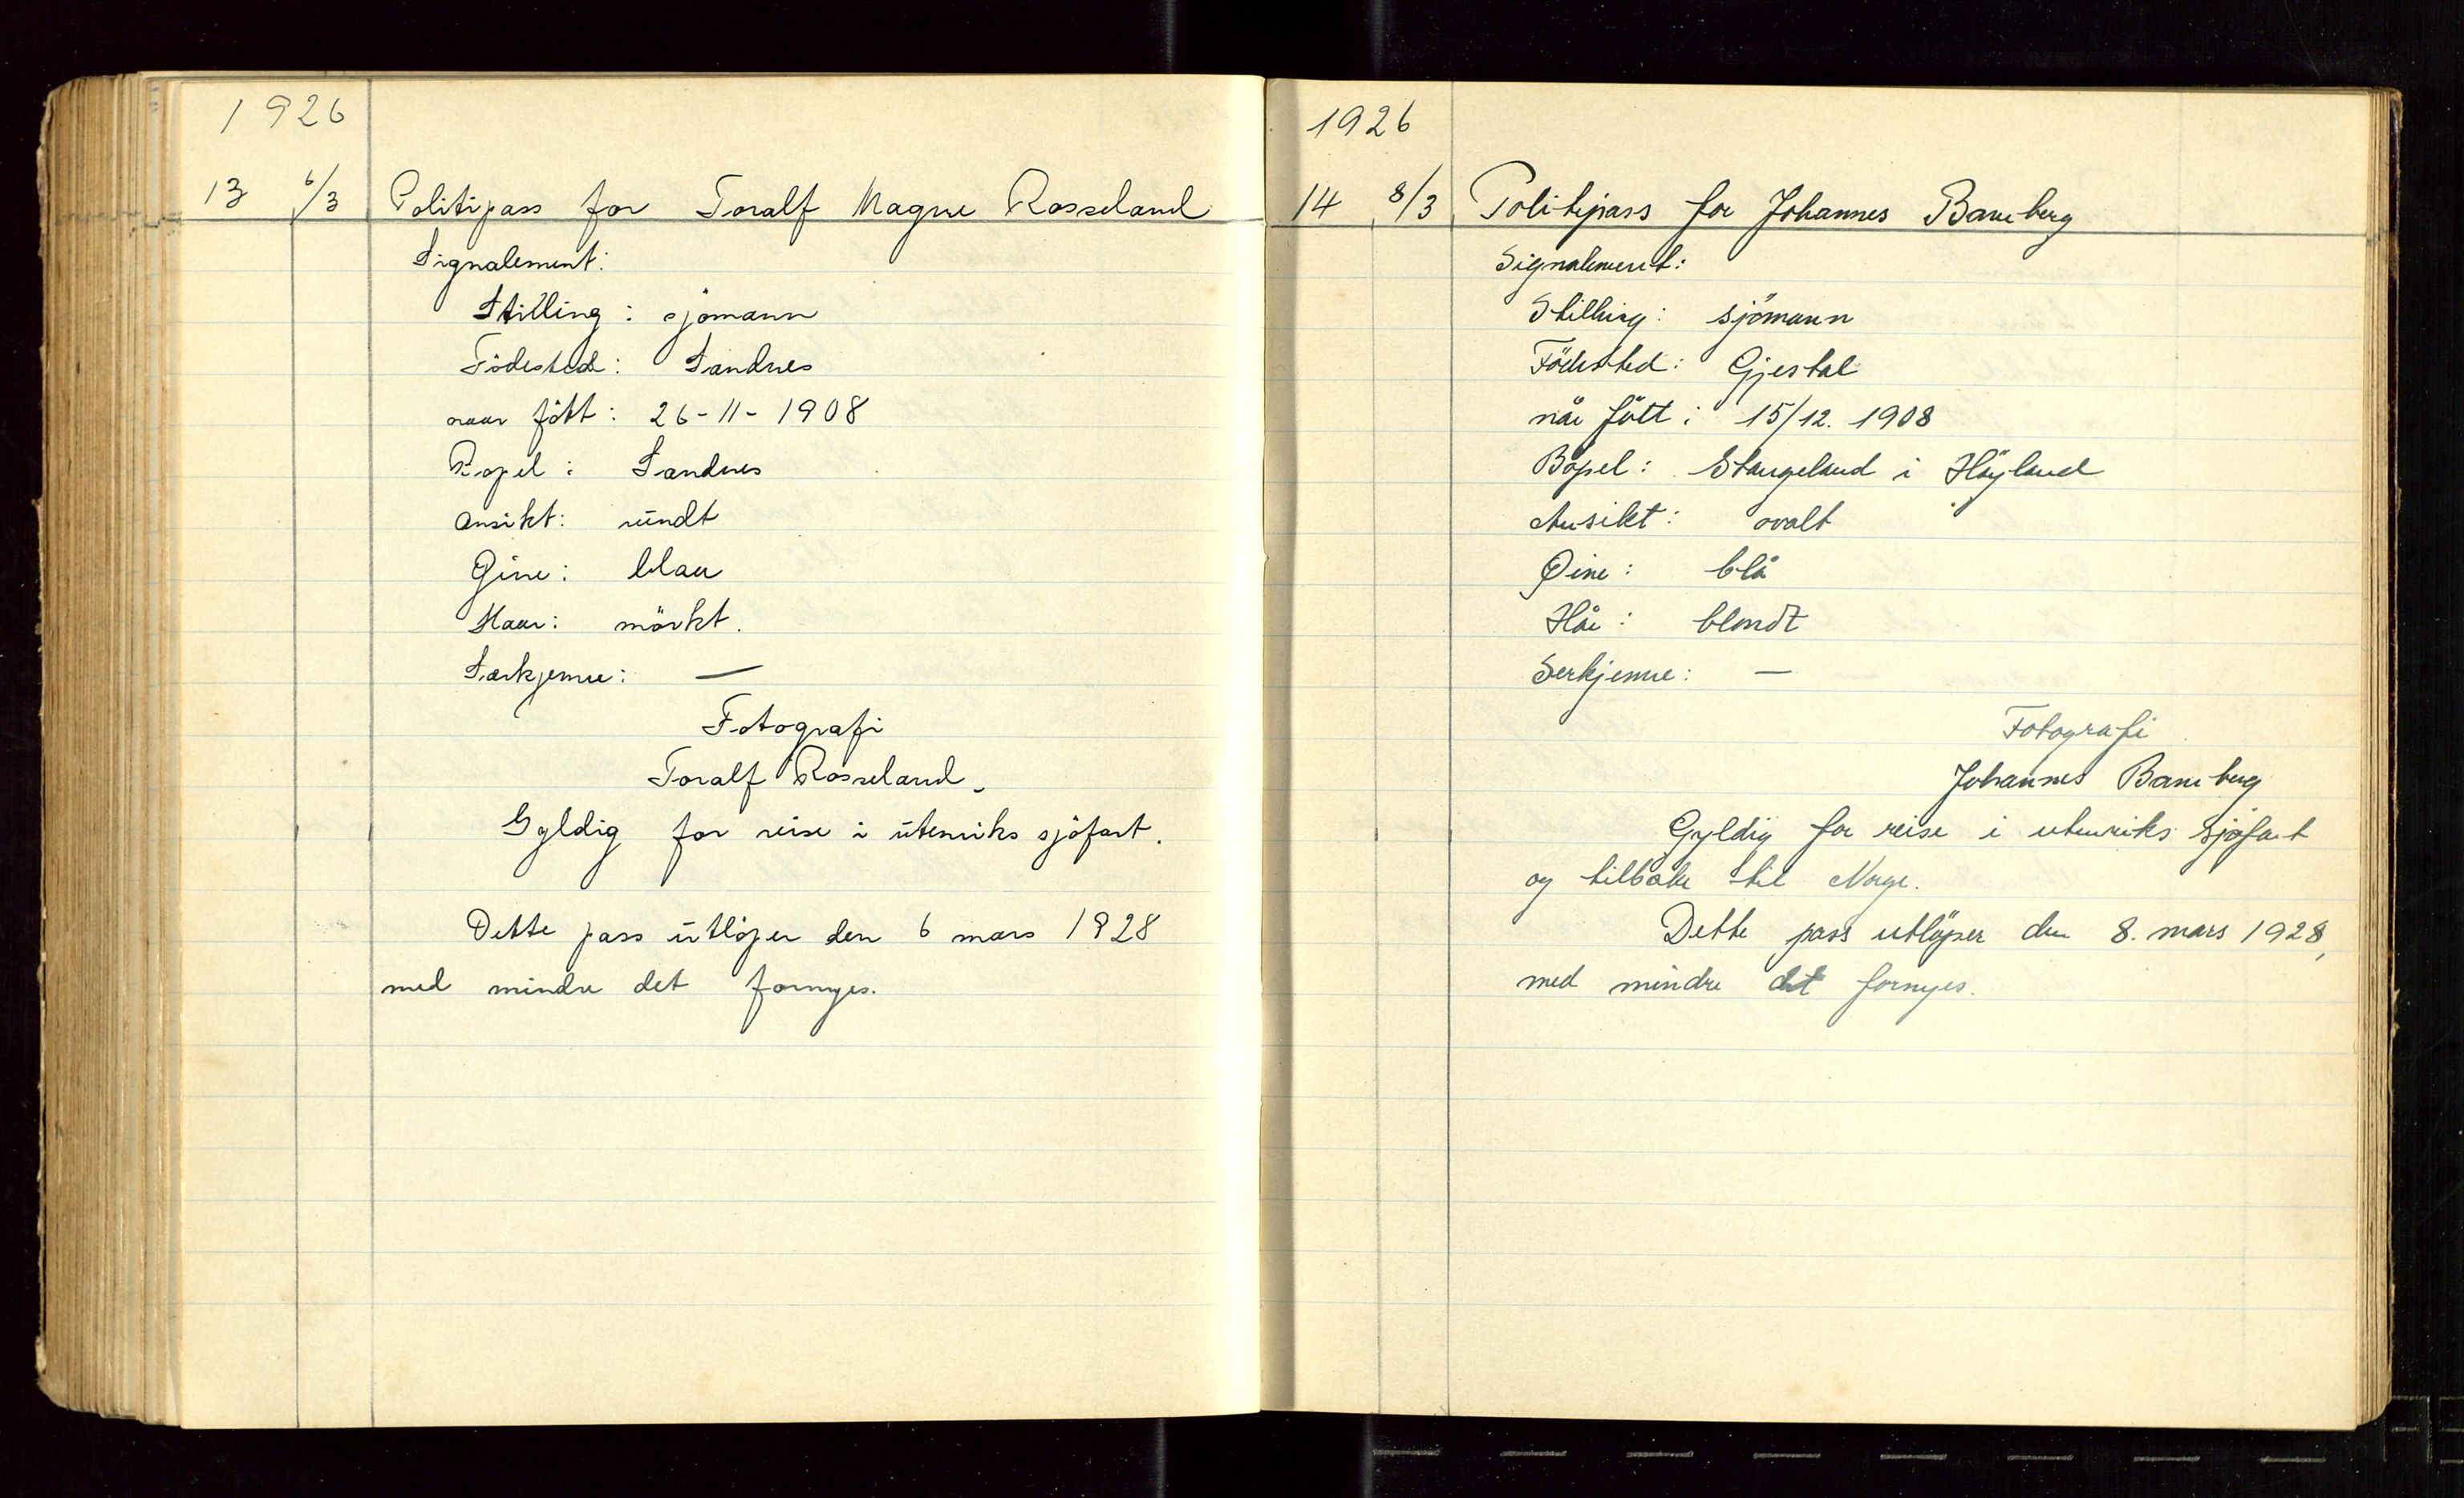 1926
13 6/3 Politipass for Toralf Magne Rosseland
Signalement:
Stilling: sjömann
Födested: Sandnes
naar født: 26-11-1908
Bopel: Sandnes
Ansikt: rundt
Öine: blaa
Haar: mörkt.
Særkjenne: —
Fotografi
Toralf Rosseland.
Gyldig for reise i utenriks sjöfart.
Dette pass utlöper den 6 mars 1928
med mindre det fornyes.
1926
14 8/3 Politipass for Johannes Bamberg
Signalement:
Stilling: sjömann
Födested: Gjestal
når fött: 15/12. 1908
Bopel: Stangeland i Höyland
Ansikt: ovalt
Øine: blå
Hår: blondt
Serkjenne: —
Fotografi
Johannes Bamberg
Gyldig for reise i utenriks sjöfart
og tilbake til Norge.
Dette pass utlöper den 8. mars 1928,
med mindre det fornyes.